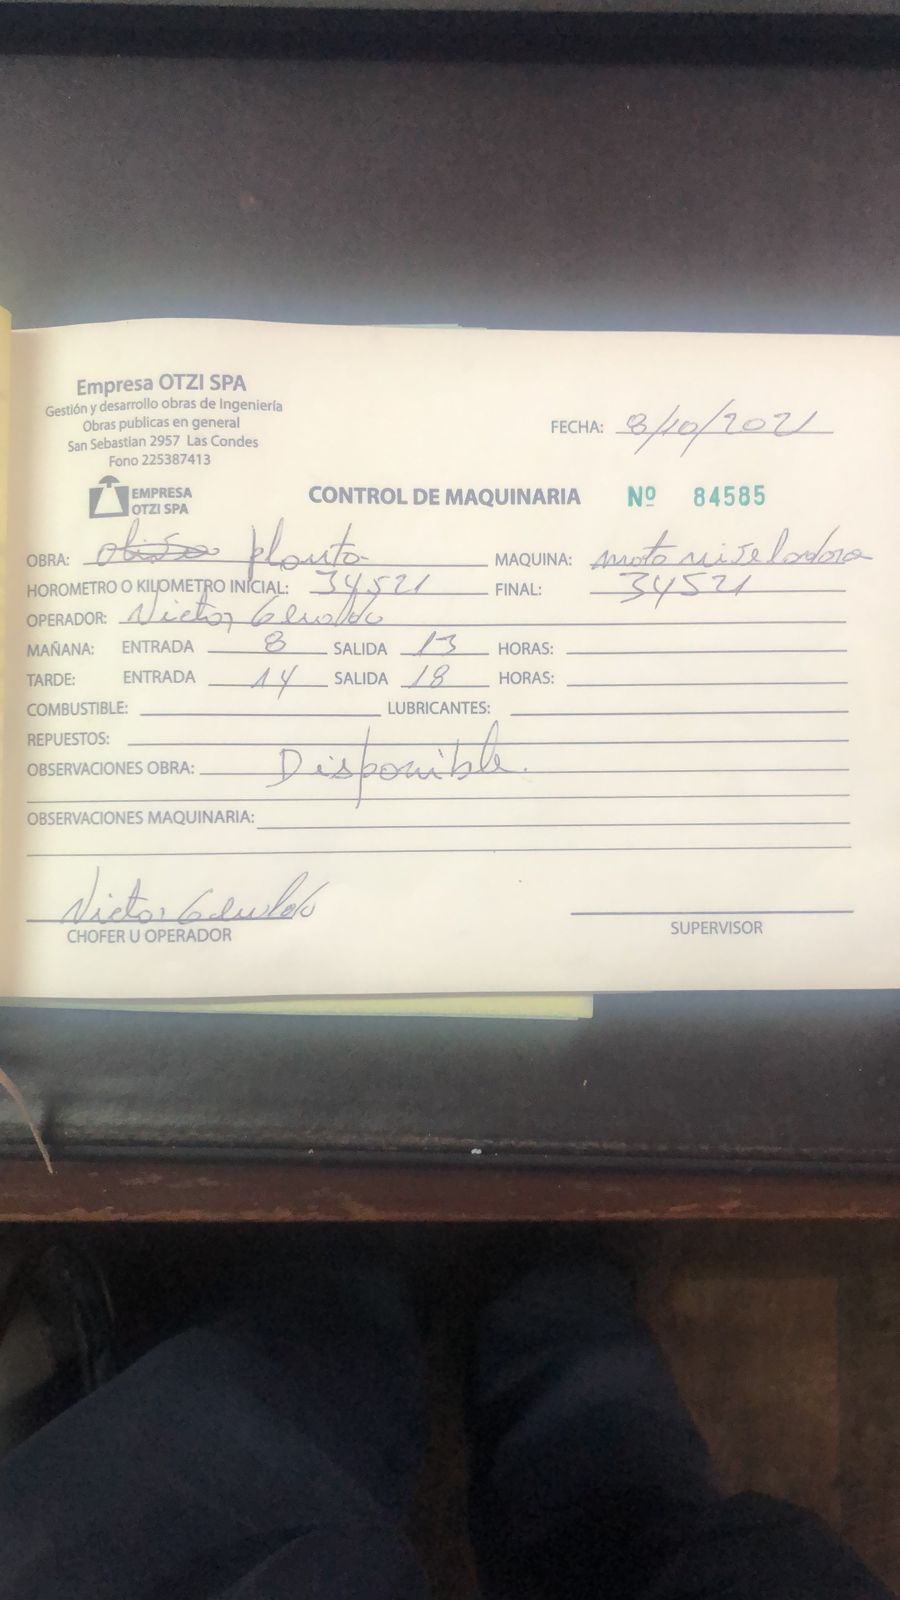 Empresa OTZI SPA
Gestión y desarrollo obras de Ingeniería
Obras publicas en general
San Sebastian 2957 Las Condes
Fono 225387413
FECHA: 8/10/2021
EMPRESA
OTZI SPA
CONTROL DE MAQUINARIA Nº 84585
OBRA: planta MAQUINA: moto niveladora
HOROMETRO O KILOMETRO INICIAL: 34521 FINAL: 34521
OPERADOR: Victor
MAÑANA: ENTRADA 8 SALIDA 13 HORAS:
TARDE: ENTRADA 14 SALIDA 18 HORAS:
COMBUSTIBLE: LUBRICANTES:
REPUESTOS:
OBSERVACIONES OBRA: Disponible.
OBSERVACIONES MAQUINARIA:
Victor
CHOFER U OPERADOR
SUPERVISOR